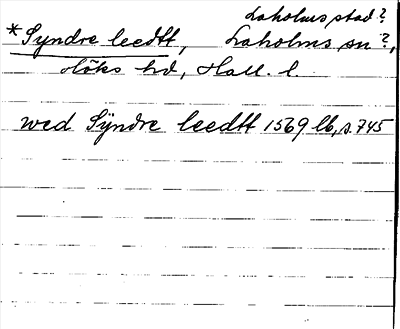 Laholms stad?
*Syndre leedtt, Laholms sn?,
Höks hd, Hall. l.
wed Sÿndre leedtt 1569 lb, s. 745